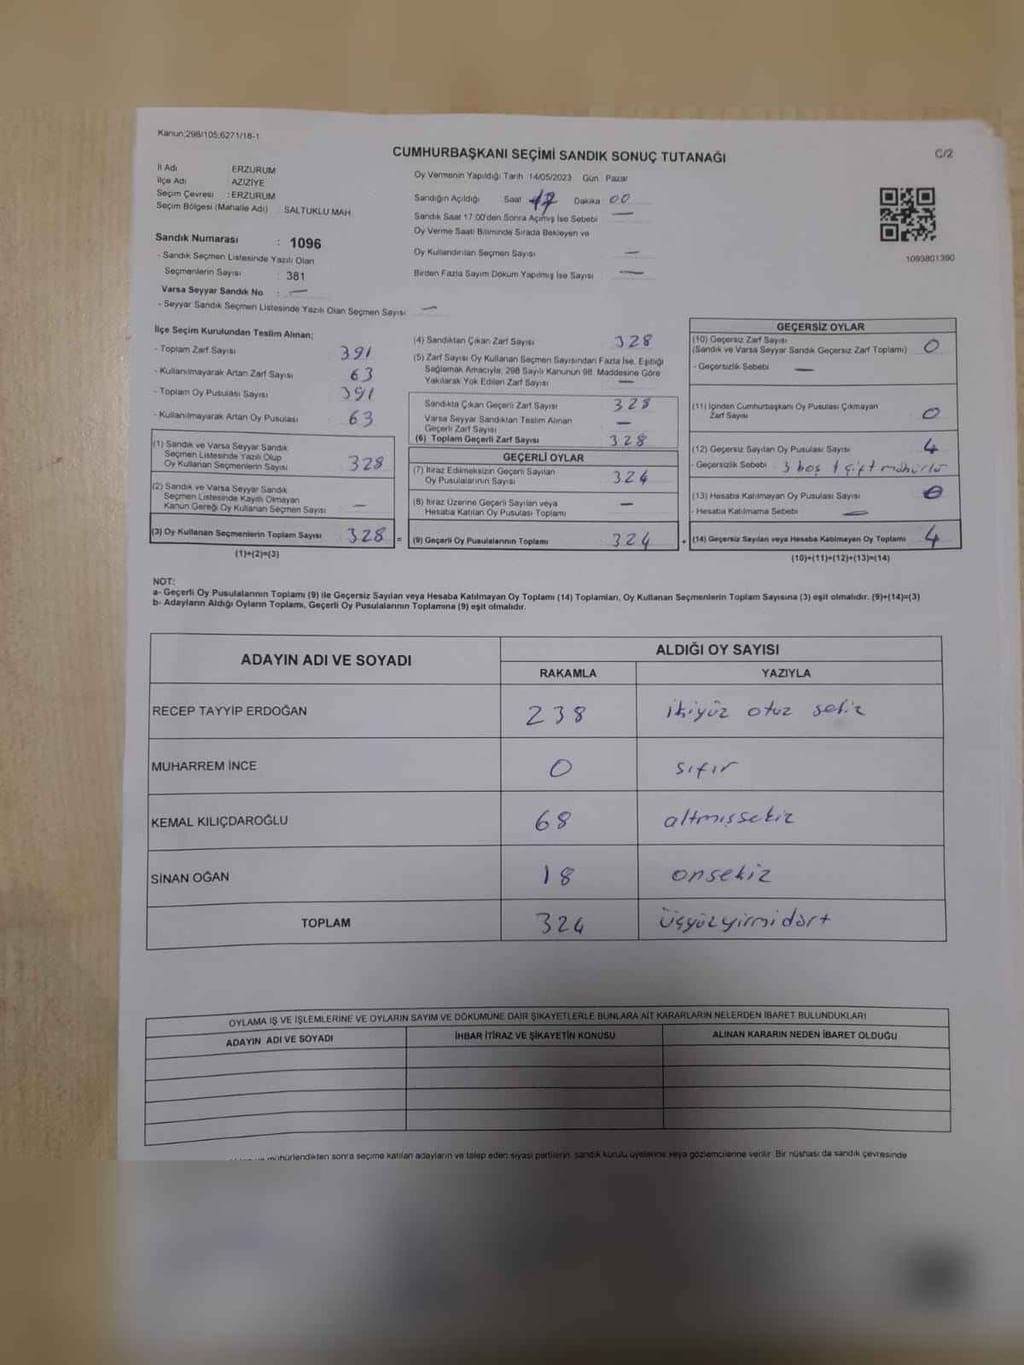 Kanun;298/105;6271/18-1
CUMHURBAŞKANI SEÇİMİ SANDIK SONUÇ TUTANAĞI
C/2
İl Adı ERZURUM
İlçe Adı AZİZİYE
Seçim Çevresi : ERZURUM
Seçim Bölgesi (Mahalle Adı) SALTUKLU MAH.
Oy Vermenin Yapıldığı Tarih :14/05/2023 Gün Pazar
Sandığın Açıldığı Saat 17 Dakika 00
Sandık Saat 17:00'den Sonra Açımış İse Sebebi —
Oy Verme Saati Bitiminde Sırada Bekleyen ve
Oy Kullandırılan Seçmen Sayısı —
Birden Fazla Sayım Döküm Yapılmış İse Sayısı —
1093801390
Sandık Numarası : 1096
- Sandık Seçmen Listesinde Yazılı Olan
Seçmenlerin Sayısı : 381
Varsa Seyyar Sandık No : —
- Seyyar Sandık Seçmen Listesinde Yazılı Olan Seçmen Sayısı —
İlçe Seçim Kurulundan Teslim Alınan;
- Toplam Zarf Sayısı 391
- Kullanılmayarak Artan Zarf Sayısı 63
- Toplam Oy Pusulası Sayısı 391
- Kullanılmayarak Artan Oy Pusulası 63
(1) Sandık ve Varsa Seyyar Sandık
Seçmen Listesinde Yazılı Olup
Oy Kullanan Seçmenlerin Sayısı 328
(2) Sandık ve Varsa Seyyar Sandık
Seçmen Listesinde Kayıtlı Olmayan
Kanun Gereği Oy Kullanan Seçmen Sayısı —
(3) Oy Kullanan Seçmenlerin Toplam Sayısı 328 =
(1)+(2)=(3)
(4) Sandıktan Çıkan Zarf Sayısı 328
(5) Zarf Sayısı Oy Kullanan Seçmen Sayısından Fazla İse, Eşitliği
Sağlamak Amacıyla; 298 Sayılı Kanunun 98. Maddesine Göre
Yakılarak Yok Edilen Zarf Sayısı —
Sandıkta Çıkan Geçerli Zarf Sayısı 328
Varsa Seyyar Sandıktan Teslim Alınan
Geçerli Zarf Sayısı —
(6) Toplam Geçerli Zarf Sayısı 328
GEÇERLİ OYLAR
(7) İtiraz Edilmeksizin Geçerli Sayılan
Oy Pusulalarının Sayısı 324
(8) İtiraz Üzerine Geçerli Sayılan veya
Hesaba Katılan Oy Pusulası Toplamı —
(9) Geçerli Oy Pusulalarının Toplamı 324 +
GEÇERSİZ OYLAR
(10) Geçersiz Zarf Sayısı
(Sandık ve Varsa Seyyar Sandık Geçersiz Zarf Toplamı) 0
- Geçersizlik Sebebi —
(11) İçinden Cumhurbaşkanı Oy Pusulası Çıkmayan
Zarf Sayısı 0
(12) Geçersiz Sayılan Oy Pusulası Sayısı 4
- Geçersizlik Sebebi 3 boş 1 çift mühürlü
(13) Hesaba Katılmayan Oy Pusulası Sayısı 0
- Hesaba Katılmama Sebebi —
(14) Geçersiz Sayılan veya Hesaba Katılmayan Oy Toplamı 4
(10)+(11)+(12)+(13)=(14)
NOT:
a- Geçerli Oy Pusulalarının Toplamı (9) ile Geçersiz Sayılan veya Hesaba Katılmayan Oy Toplamı (14) Toplamları, Oy Kullanan Seçmenlerin Toplam Sayısına (3) eşit olmalıdır. (9)+(14)=(3)
b- Adayların Aldığı Oyların Toplamı, Geçerli Oy Pusulalarının Toplamına (9) eşit olmalıdır.
ADAYIN ADI VE SOYADI
ALDIĞI OY SAYISI
RAKAMLA YAZIYLA
RECEP TAYYİP ERDOĞAN 238 ikiyüz otuz sekiz
MUHARREM İNCE 0 sıfır
KEMAL KILIÇDAROĞLU 68 altmışsekiz
SİNAN OĞAN 18 onsekiz
TOPLAM 324 üçyüzyirmidört
OYLAMA İŞ VE İŞLEMLERİNE VE OYLARIN SAYIM VE DÖKÜMÜNE DAİR ŞİKAYETLERLE BUNLARA AİT KARARLARIN NELERDEN İBARET BULUNDUKLARI
ADAYIN ADI VE SOYADI İHBAR İTİRAZ VE ŞİKAYETİN KONUSU ALINAN KARARIN NEDEN İBARET OLDUĞU
mühürlendikten sonra seçime katılan adayların ve talep eden siyasi partilerin, sandık kurulu üyelerine veya gözlemcilerine verilir. Bir nüshası da sandık çevresinde